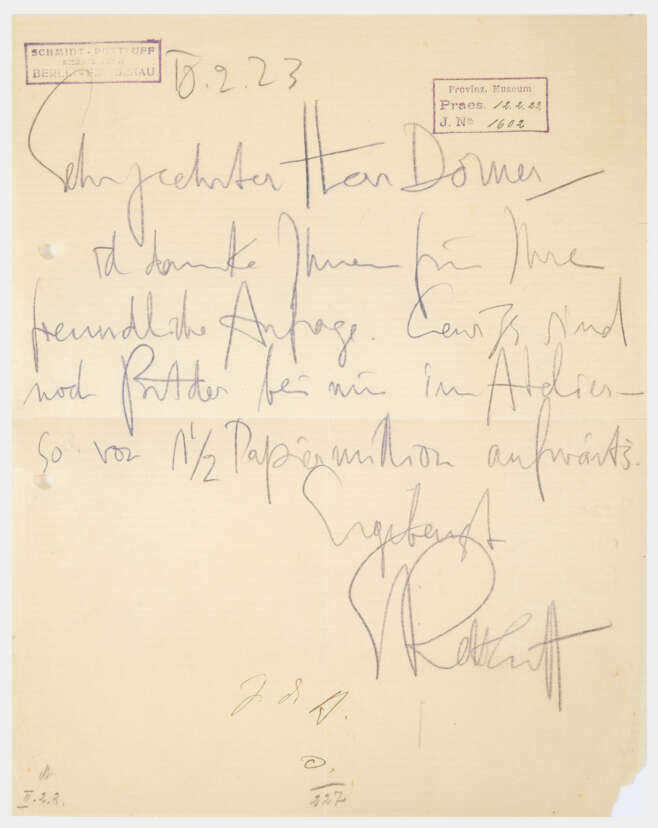 SCHMIDT-ROTTLUFF
BERLIN-FRIEDENAU
10.2.23
Provinz. Museum
Praes. 12.2.23
J. No 1602
Sehr geehrter Herr Dorner –
ich danke Ihnen für Ihre
freundliche Anfrage. Gewiß sind
noch Bilder bei mir im Atelier –
so von 1 1/2 Papiermillion aufwärts.
Ergebenst
SRottluff
z. d. A.
D.
II.2.2.
227